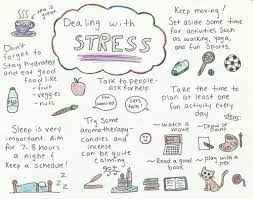 Dealing with
STRESS
tea is great
Don't
forget to
Stay hydrated
and eat good
food like
• fruit
• veggies
• nuts
Keep moving!
Set aside some time
for activities such
as walking, yoga,
and fun Sports.
Talk to people-
ask for help.
Take the time to
plan at least one
fun activity every
day
Sleep is very
important. Aim
for 7-8 hours
a night &
Keep a schedule!
Try some
aromatherapy-
candles and
incense
can be quite
calming
~ watch a
movie
~ Draw or
paint
~ Read a good
book
~ play with a
pet